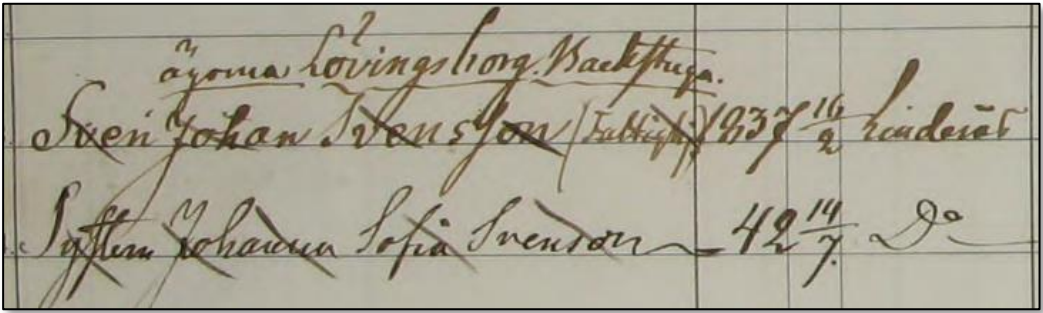 ägorna Lövingsborg. Backstuga.
Sven Johan Svensson (Fattighj) 1837 16/2 Linderås
Systern Johanna Sofia Svenson – 42 14/7. Do